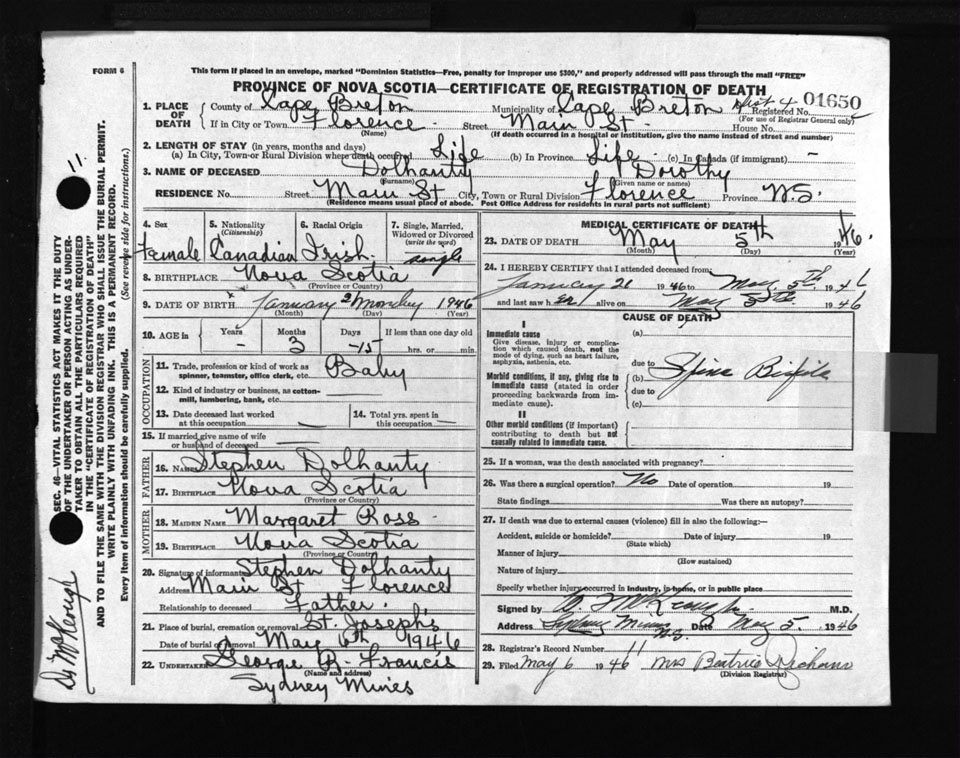 FORM 6
This form if placed in an envelope, marked "Dominion Statistics—Free, penalty for improper use $300," and properly addressed will pass through the mail "FREE"
PROVINCE OF NOVA SCOTIA—CERTIFICATE OF REGISTRATION OF DEATH
1. PLACE OF DEATH { County of Cape Breton Municipality of Cape Breton Dist 4 Registered No. 01650
(For use of Registrar General only)
If in City or Town Florence Street Main St. House No.
(Name) (If death occurred in a hospital or institution, give the name instead of street and number)
2. LENGTH OF STAY (in years, months and days)
(a) In City, Town or Rural Division where death occurred Life (b) In Province Life (c) In Canada (if immigrant) —
3. NAME OF DECEASED Dolhanty Dorothy
(Surname) (Given name or names)
RESIDENCE No. Street Main St City, Town or Rural Division Florence Province N.S.
(Residence means usual place of abode. Post Office Address for residents in rural parts not sufficient)
4. Sex Female
5. Nationality (Citizenship) Canadian
6. Racial Origin Irish
7. Single, Married, Widowed or Divorced (write the word) single
8. BIRTHPLACE Nova Scotia
(Province or Country)
9. DATE OF BIRTH January 2 Monday 1946
(Month) (Day) (Year)
10. AGE in { Years — Months 3 Days -15 If less than one day old
hrs. or min.
OCCUPATION
11. Trade, profession or kind of work as spinner, teamster, office clerk, etc. Baby
12. Kind of industry or business, as cotton-mill, lumbering, bank, etc.
13. Date deceased last worked at this occupation —
14. Total yrs. spent in this occupation —
15. If married give name of wife or husband of deceased —
FATHER
16. NAME Stephen Dolhanty
17. BIRTHPLACE Nova Scotia
(Province or Country)
MOTHER
18. MAIDEN NAME Margaret Ross
19. BIRTHPLACE Nova Scotia
(Province or Country)
20. Signature of informant Stephen Dolhanty
Address Main St Florence
Relationship to deceased Father.
21. Place of burial, cremation or removal St. Josephs,
Date of burial or removal May 6th 1946
22. UNDERTAKER George R. Francis
(Name and address)
Sydney Mines
MEDICAL CERTIFICATE OF DEATH
23. DATE OF DEATH May 5th 1946.
(Month) (Day) (Year)
24. I HEREBY CERTIFY that I attended deceased from
January 21 1946 to May 5th. 1946
and last saw her alive on May 5th 1946
CAUSE OF DEATH
I
Immediate cause
Give disease, injury or complication which caused death, not the mode of dying, such as heart failure, asphyxia, asthenia, etc.
(a)
due to
Morbid conditions, if any, giving rise to immediate cause (stated in order proceeding backwards from immediate cause).
(b) Spina Bifida
due to
(c)
II
Other morbid conditions (if important) contributing to death but not causally related to immediate cause.
25. If a woman, was the death associated with pregnancy?
26. Was there a surgical operation? No Date of operation 19
State findings Was there an autopsy?
27. If death was due to external causes (violence) fill in also the following:—
Accident, suicide or homicide? Date of injury 19
(State which)
Manner of injury
(How sustained)
Nature of injury
Specify whether injury occurred in industry, in home, or in public place
Signed by McKeough M.D.
Address Sydney Mines N.S. Date May 5. 1946
28. Registrar's Record Number 11
29. Filed May 6 1946 Mrs Beatrice
(Division Registrar)
11.
SEC. 46—VITAL STATISTICS ACT MAKES IT THE DUTY
OF THE UNDERTAKER OR PERSON ACTING AS UNDERTAKER TO OBTAIN ALL THE PARTICULARS REQUIRED
IN THE "CERTIFICATE OF REGISTRATION OF DEATH"
AND TO FILE THE SAME WITH THE DIVISION REGISTRAR WHO SHALL ISSUE THE BURIAL PERMIT.
WRITE PLAINLY WITH UNFADING INK. THIS IS A PERMANENT RECORD.
Every item of information should be carefully supplied. (See reverse side for instructions.)
Dr McKeough